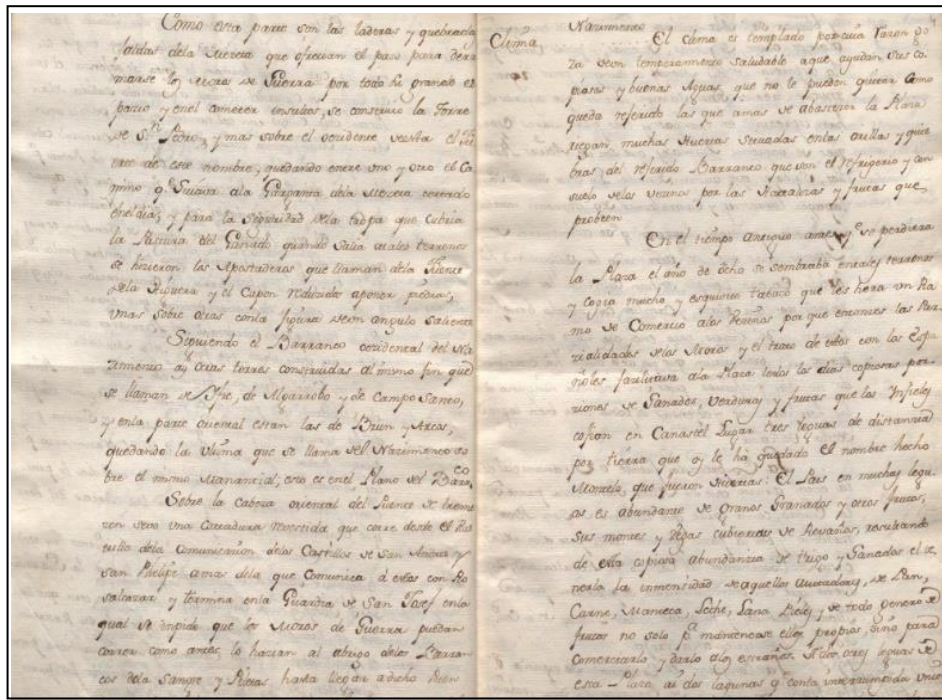 Como esta parte son las laderas y quebradas
faldas dela Meceta que ofrecian el paso para derra
marse los Moros de Guerra por todo su grande es
pacio y en el cometer insultos, se construio la Torre
de Sn. Pedro, y mas sobre el occidente resulta el Fu
erte de este nombre, quedando entre uno y otro el Ca
mino q. Guiava ala Garganta dela Meceta cerrado
enel dia, y para la seguridad dela tropa que cubria
la Pastura del Ganado quando salia a tales terrenos
se hizieron las Apostaderas que llaman dela Fuente
dela Higuera y el Capon reducidas aponer piedras,
unas sobre otras con la figura deun angulo saliente
Siguiendo el Barranco occidental del Na
zimiento ay otras torres construidas al mismo fin que
se llaman de Ifre, de Algarrobo y de Campo Santo,
y enla parte oriental estan las de Brun y Arcas,
quedando la ultima que se llama del Nazimiento so
bre el mismo Manantial; esto es enel Plano del Barco.
Sobre la cabeza oriental del Puente se
una Cortadura revestida, que corre desde el Ra
stillo dela Comunicacion delos Castillos de San Andres y
San Phelipe amas dela que Comunica á estos con Ro
salcazar, y termina enla Guardia de San Josef enla
qual se impide que los Moros de Guerra puedan
correr como antes lo hazian al abrigo delos Barran
cos dela Sangre y Pieltas hasta llegar adicho Puen
Nazimiento
Clima,
El clima es templado por cuia razon go
za deun temperamento saludable aque ayudan sus co
piosas y buenas Aguas, que no le pueden quitar como
queda referido las que amas de abastecer la Plaza
riegan muchas Huertas situadas enlas orillas y quie
bras del referido Barranco que son el refrigerio y con
suelo delos vecinos por las Hortalizas y frutas que
probeen
En el tiempo antiguo antes q. se perdiera
la Plaza el año de ocho se sembraba entales terrenos
y cogia mucho y esquisito tabaco que les hera un Ra
mo de Comercio alos Vezinos por que entonces las Par
zialidades delos Moros y el trato de estos con los Espa
ñoles facilitava ala Plaza todos los dias copiosas por
ziones de Ganados, Verduras y frutas que los Infieles
cojian en Canastel Lugar tres leguas de distancia
por tierra que oy le ha quedado el nombre hecho
Monte, que fueron Huertas: El Pais en muchas legu
as es abundante de granos Granados y otros frutos,
sus montes y Vegas cubiertas de Revaños, resultando
de esta copiosa abundancia de trigo y Ganados el te
nerla la inmensidad de aquellos Moradores, de Pan,
Carne, Manteca, Leche, Lana Pieles y de todo genero de
frutas no solo pa. mantenerse ellos propios, sino para
comerciarlo y darlo alos estraños. A dos ó tres leguas de
esta Plaza ai dos lagunas q. contaba interrumpida